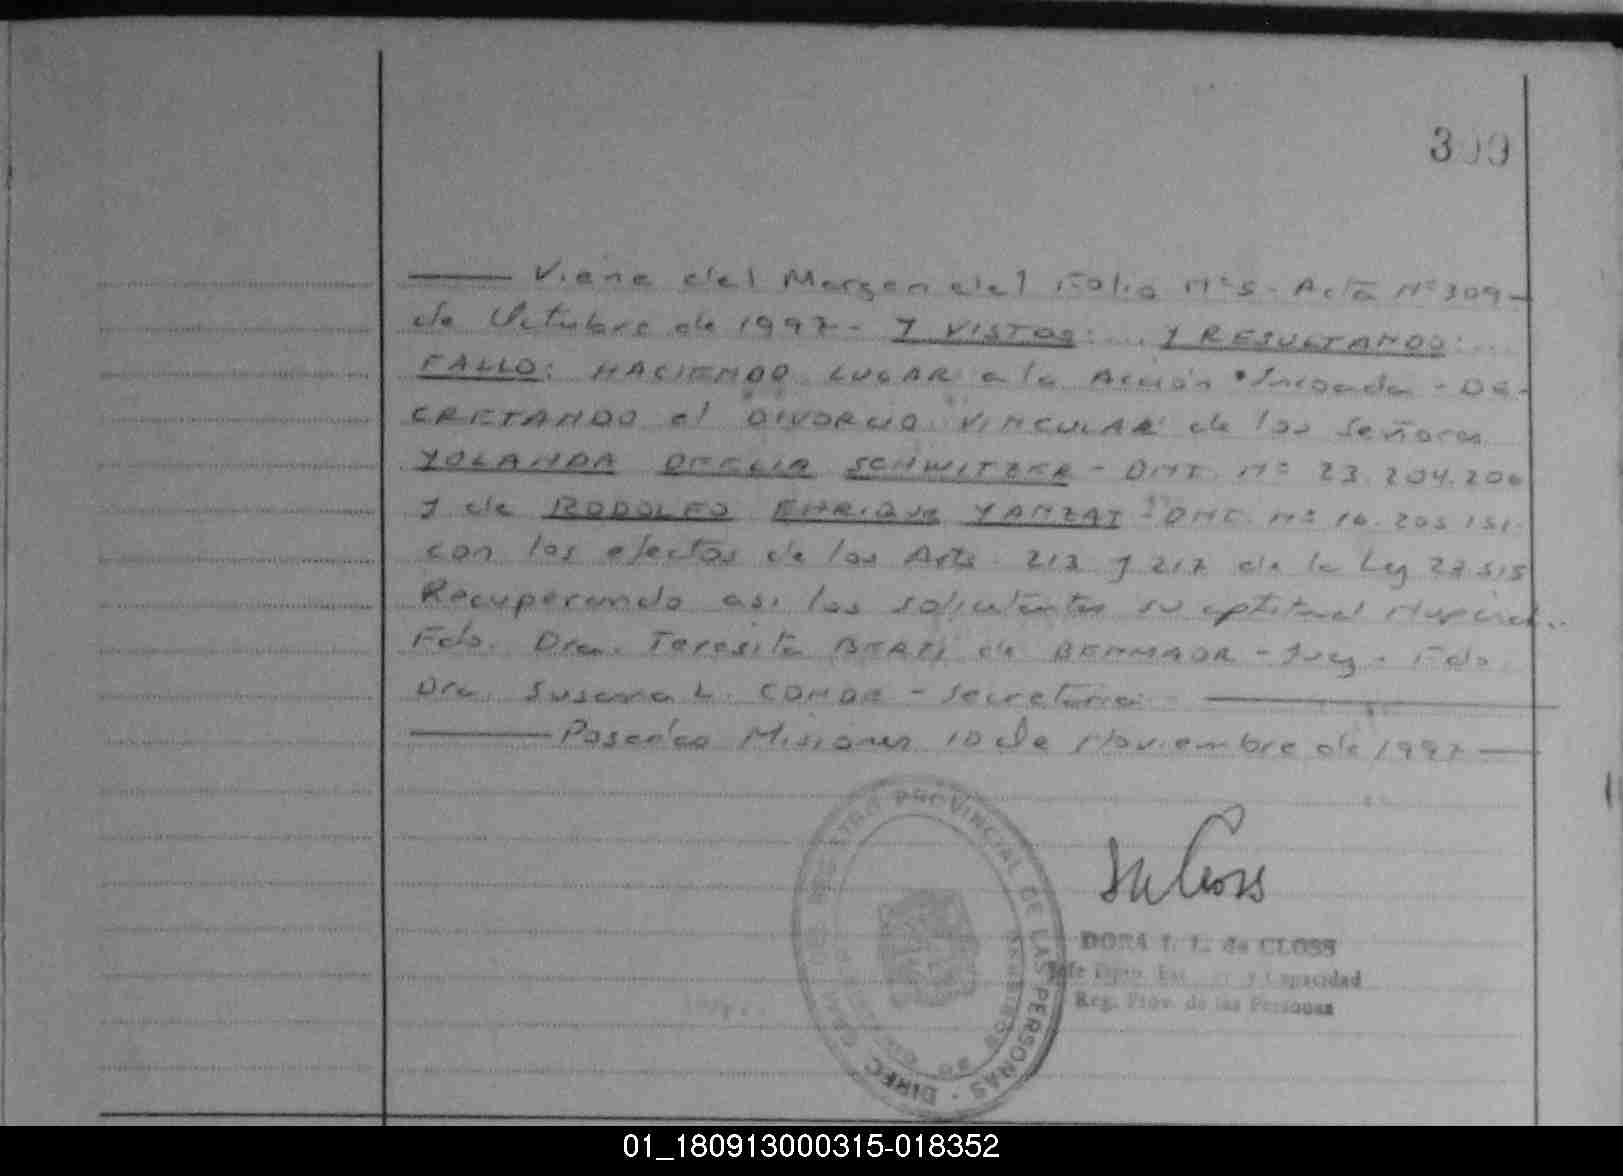 309
—— Viene del Margen del Folio Nº5 - Acta Nº309 -
de Octubre de 1997 - Y VISTOS: .... Y RESULTANDO: ...
FALLO: HACIENDO LUGAR a la Acción Incoada - DE-
CRETANDO el DIVORCIO VINCULAR de los Señores
YOLANDA SCHWITZER - DNI. Nº 23.204.200
y de RODOLFO ENRIQUE YANZAT - DNI. Nº 16.205.151.
con los efectos de los Arts. 213 y 217 de la Ley 23.515
Recuperando asi los solicitantes su aptitud Nupcial.
Fdo. Dra. Teresita de - Juez - Fdo.
Dra. Susana L. - Secretaria ——
—— Posadas Misiones 10 de Noviembre de 1997 ——
REGISTRO PROVINCIAL DE LAS PERSONAS · DIREC. GRAL. DEL
MISIONES
DORA I. L. de CLOSS
Jefe Dpto. y Capacidad
Reg. Prov. de las Personas
01_180913000315-018352